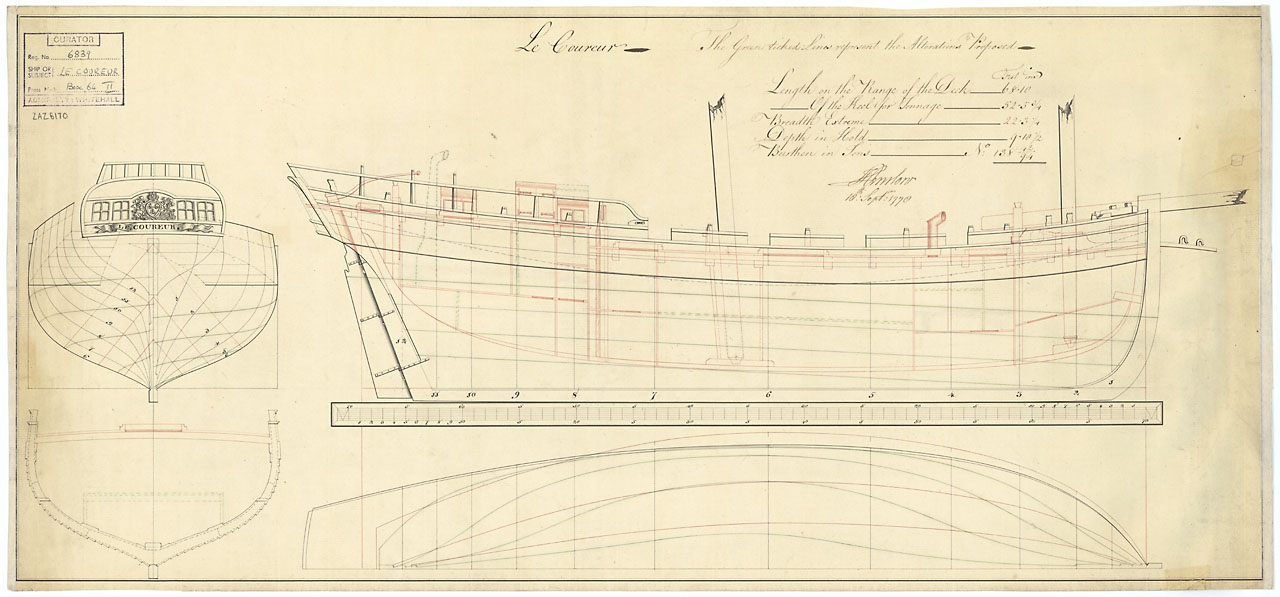 CURATOR
Reg. No. 6839
SHIP OR SUBJECT: LE COUREUR
Press Mark Box 64 II
ADMIRALTY WHITEHALL
ZAZ6170
Le Coureur
The Green ticked Lines represent the Alterations Proposed
Feet ins
Length on the Range of the Deck 68-10
Of the Keel for Tonnage 52-5 ¾
Breadth Extreme 22-3 ¼
Depth in Hold 9-10 ½
Burthen in Tons No. 138
LE COUREUR
12
10 9 8 7 6 5 4 3 2